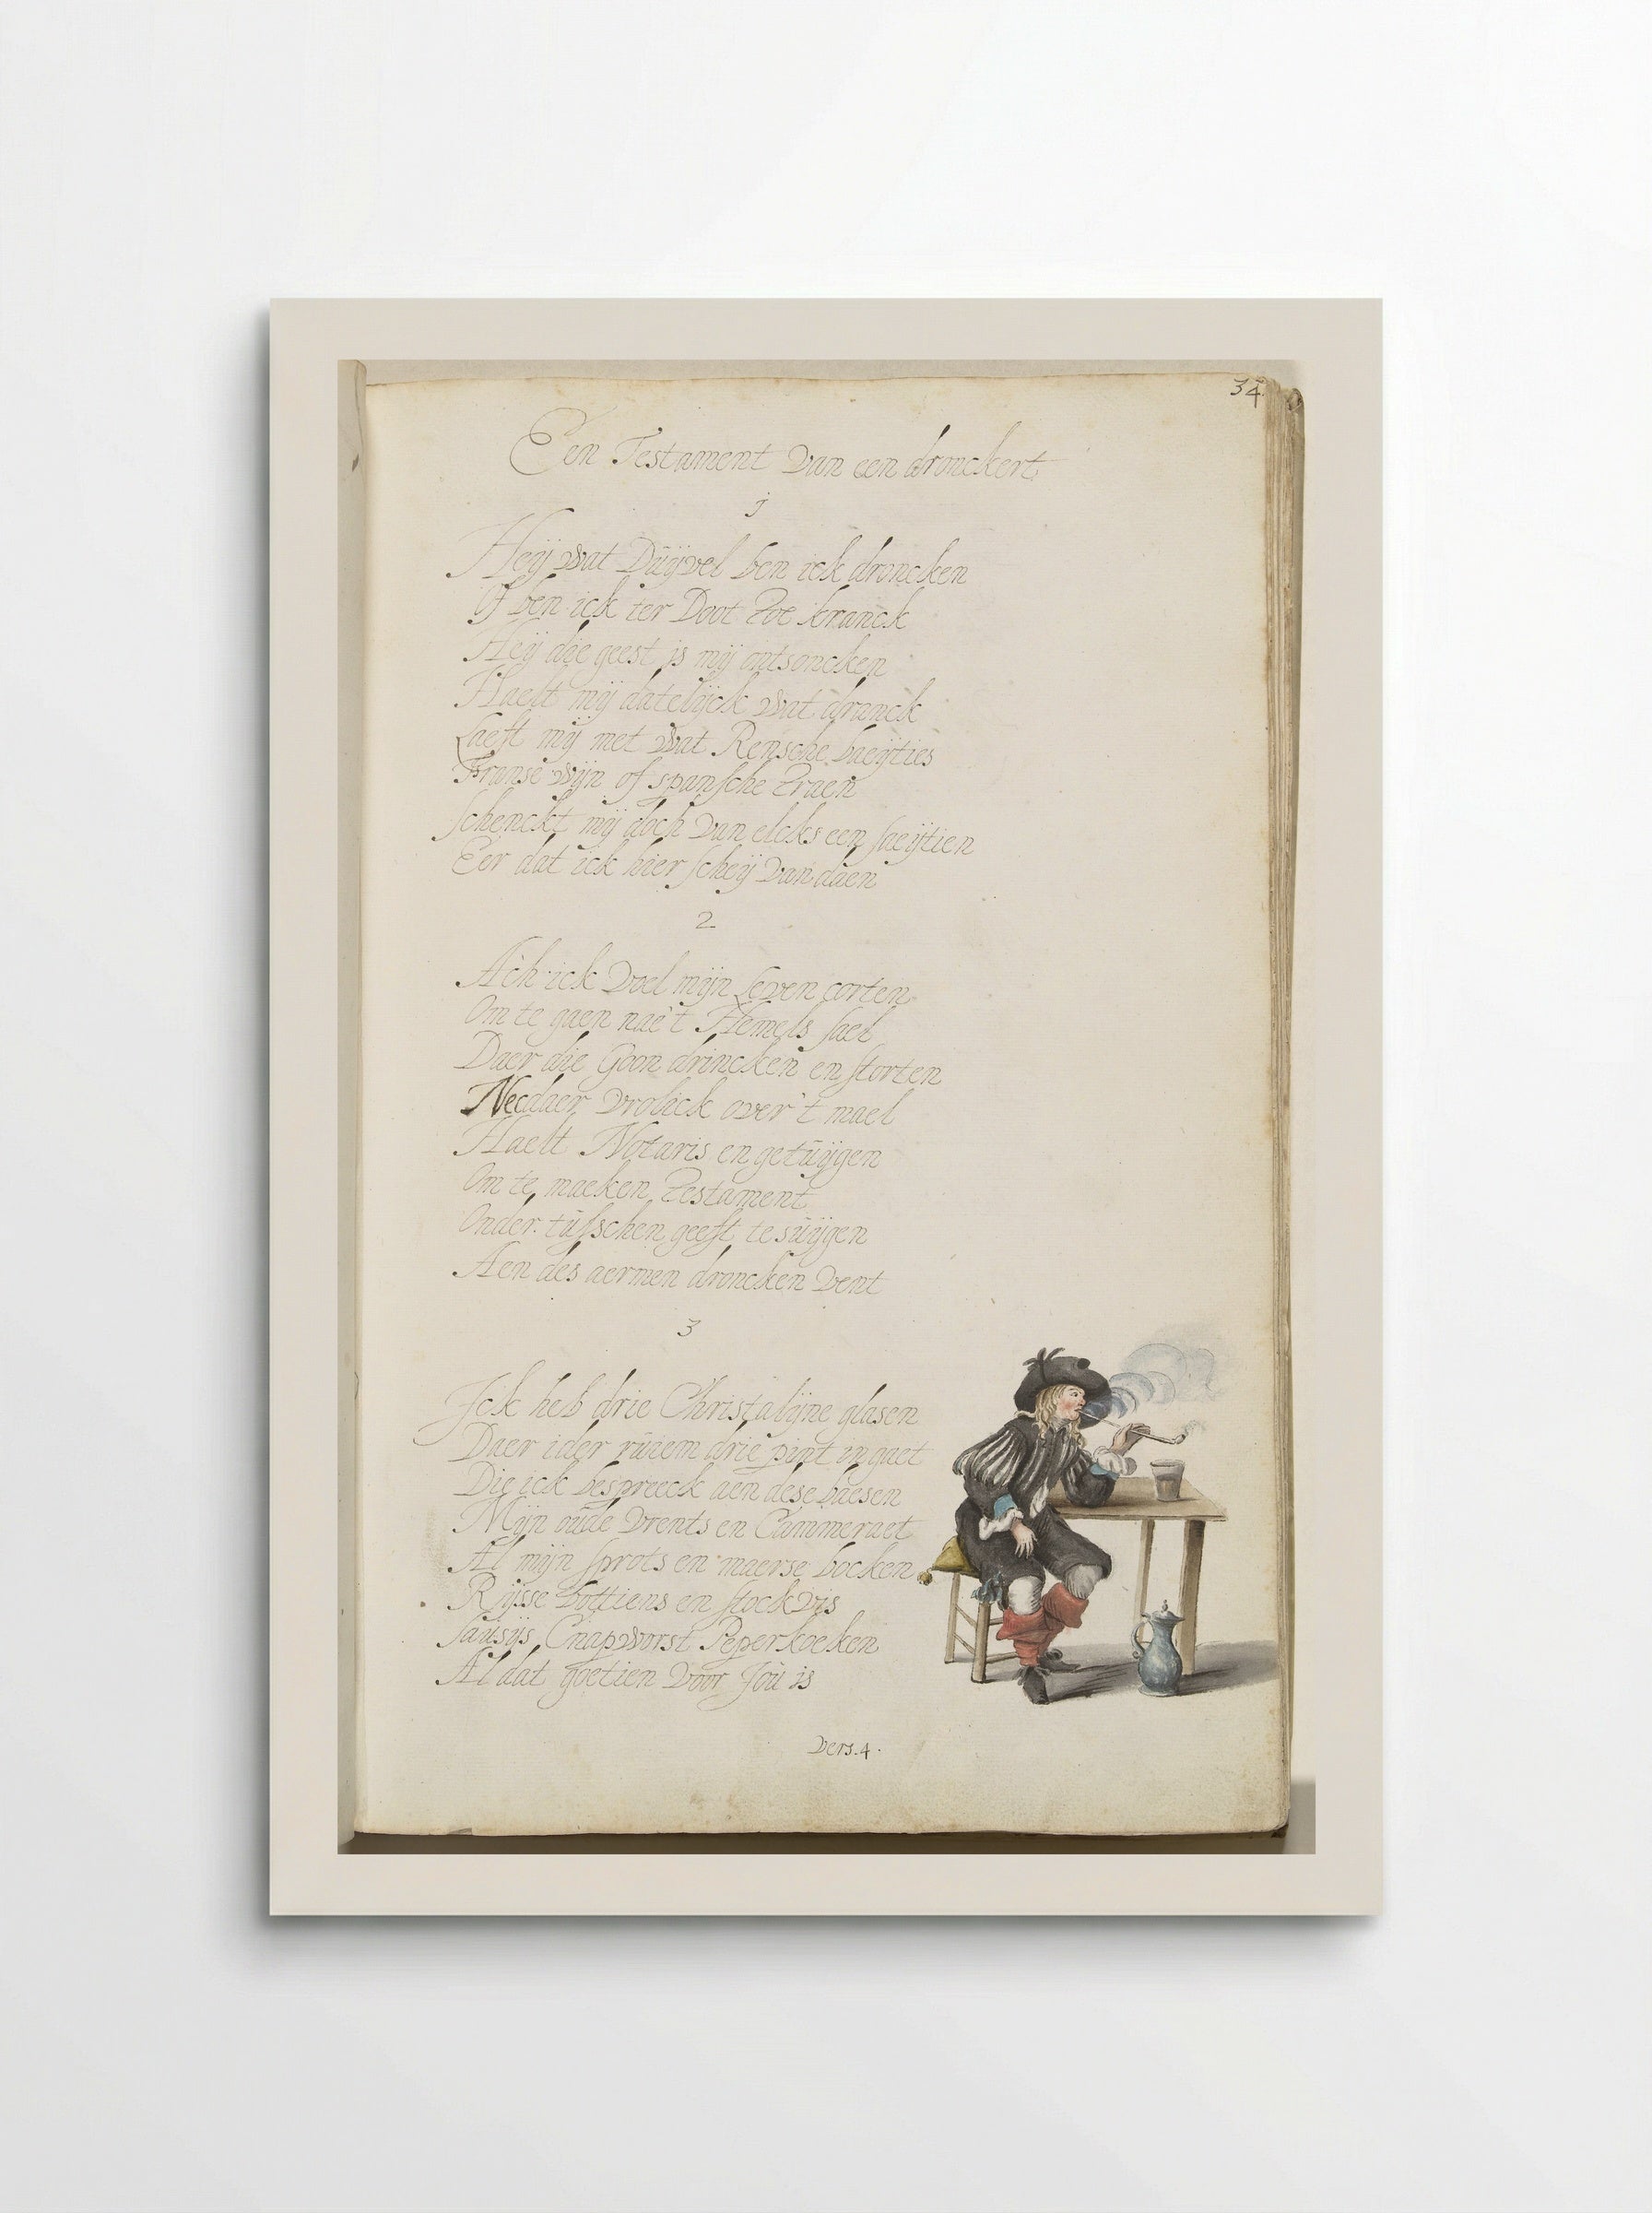 34
Een Testament van een dronckert
j
Heij wat Duijvel ben ick droncken
Of ben ick ter Doot Zoe kranck
Heij die geest is mij ontsoncken
Haelt mij datelijck wat dranck
Laeft mij met wat Rensche baeijties
Franse wijn of spansche Traen
Schenckt mij doch van elcks een saeijtien
Eer dat ick hier scheij van daen
2
Ach ick voel mijn Leven corten
Om te gaen nae't Hemels sael
Daer die Goon drincken en storten
Necdaer vrolick over't mael
Haelt Notaris en getuijgen
Om te maeken Testament
Onder tusschen geeft te suijgen
Aen des aermen droncken vent
3
Jck heb drie Christalijne glasen
Daer ider ruiem drie pint in gaet
Die ick bespreeck aen dese baesen
Mijn oude vrents en Cammeraet
Al mijn sprots en maerse bocken
Rijsse bottiens en stockvis
Sausijs Cnapworst Peperkoeken
Al dat goetien voor Jou is
vers.4.